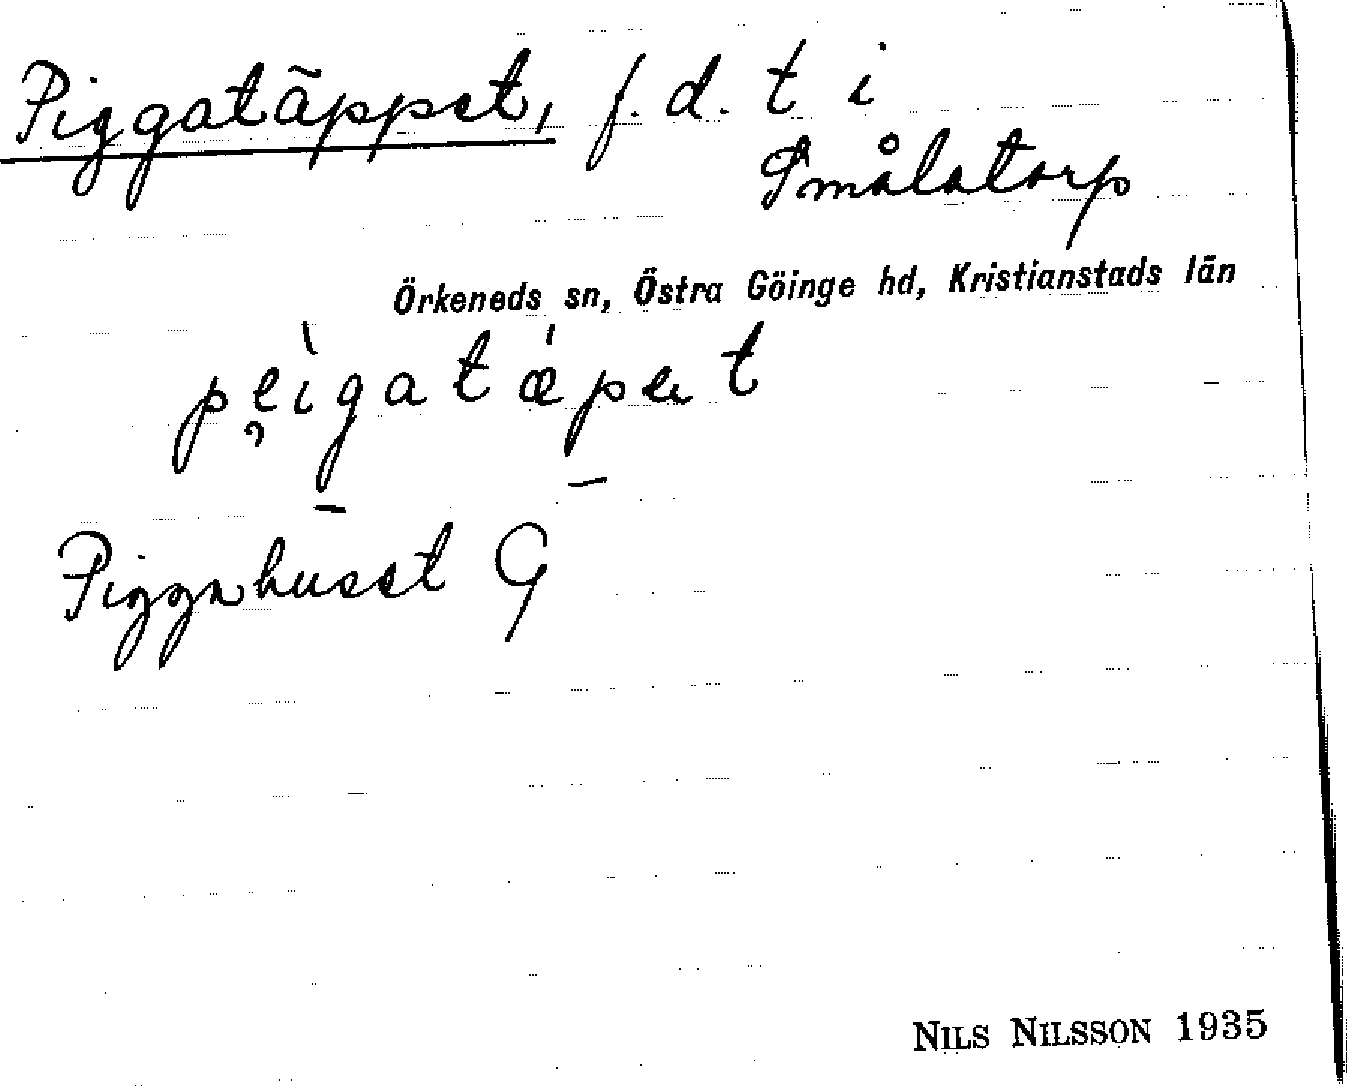 Piggatäppet, f. d. t i
Smålatorp
Örkeneds sn, Östra Göinge hd, Kristianstads län
pèigatǽpet
Piggahuset G
NILS NILSSON 1935